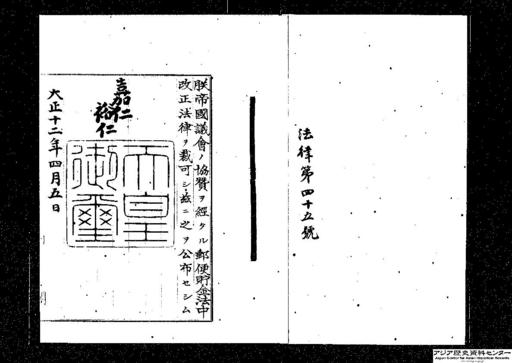 法律第四十五號
朕帝國議會ノ協贊ヲ經タル郵便貯金法中
改正法律ヲ裁可シ茲ニ之ヲ公布セシム
嘉仁
裕仁
天皇
御璽
大正十二年四月五日
アジア歴史資料センター
Japan Center for Asian Historical Records